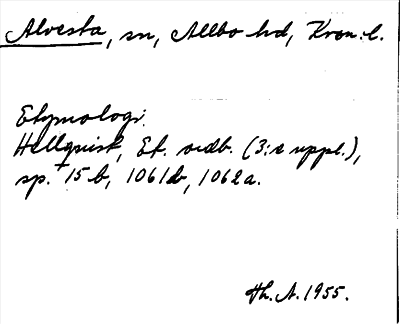 Alvesta, sn, Allbo hd, Kron. l.
Etymologi.
Hellquist, Et. ordb. (3:e uppl.),
sp. 15 b, 1061 b, 1062 a.
Th. A. 1955.